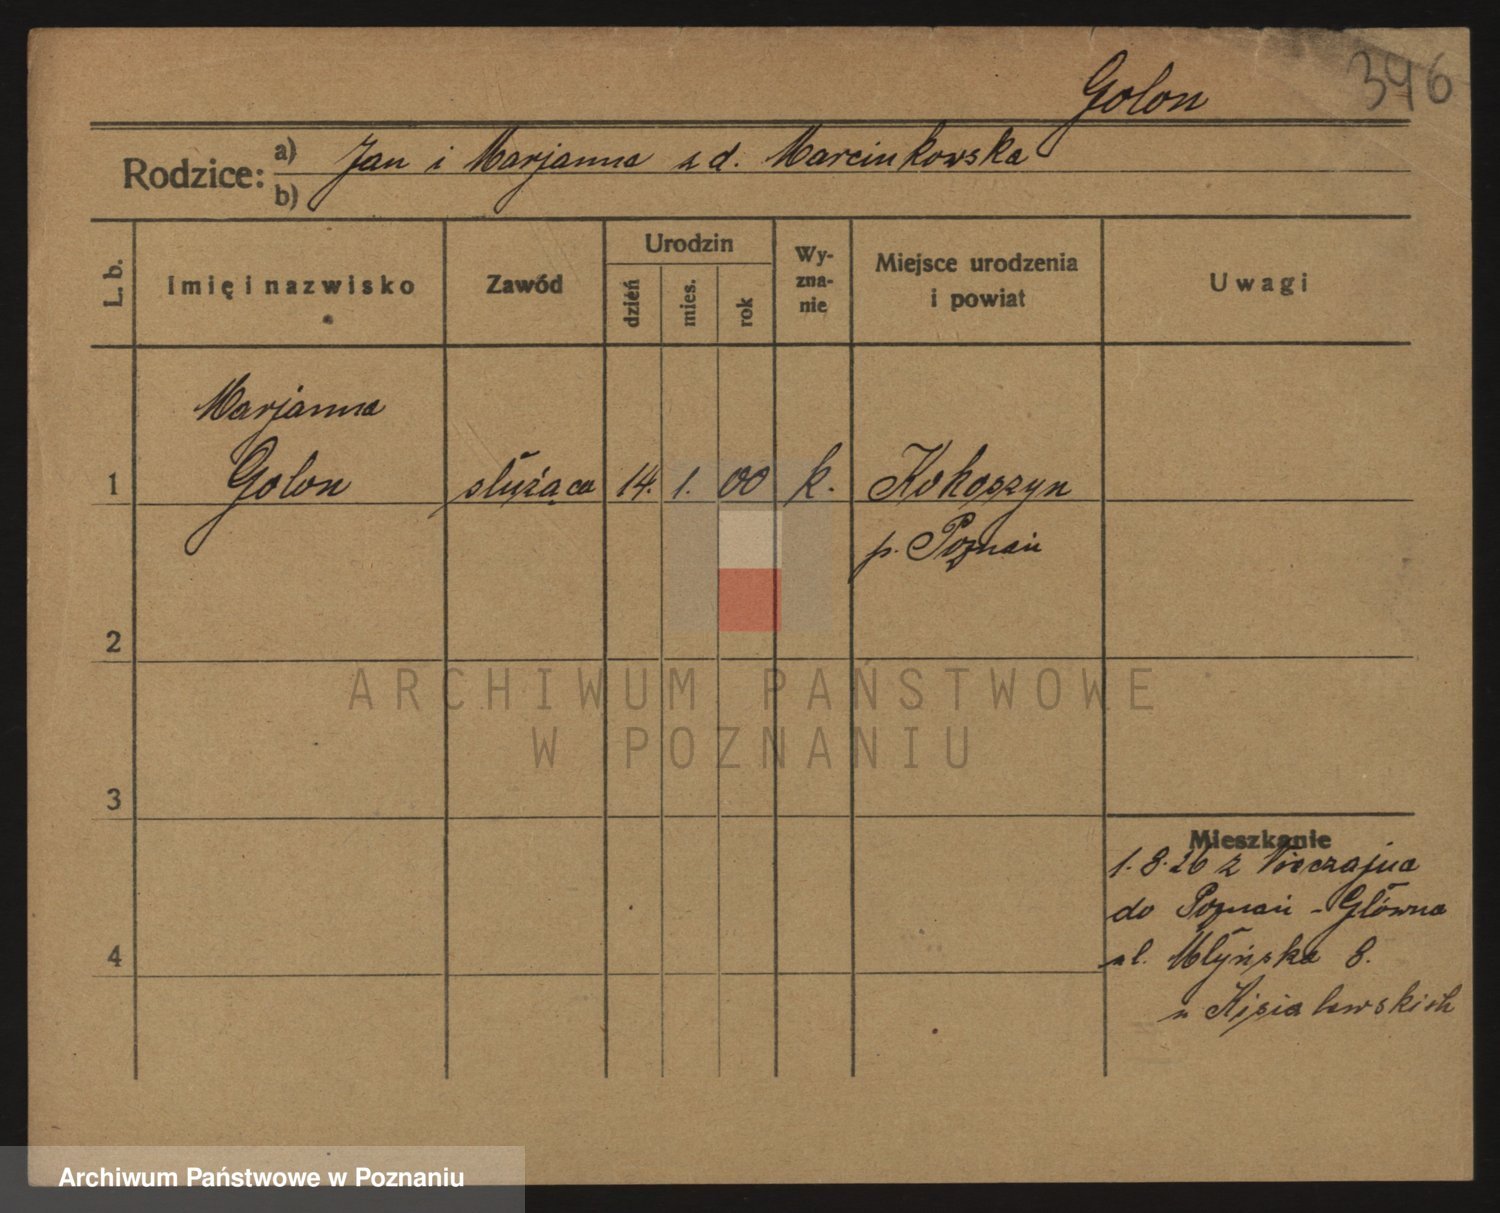 Golon
346
Rodzice:
a) Jan i Marjanna z d. Marcinkowska
b)
L. b.
Imię i nazwisko
Zawód
Urodzin
dzień
mies.
rok
Wy-
zna-
nie
Miejsce urodzenia
i powiat
Uwagi
Marjanna
1 Golon służąca 14. 1. 00 k. Kokoszyn
p. Poznań
2
ARCHIWUM PAŃSTWOWE
W POZNANIU
3
Mieszkanie
1.8.26 z
do Poznań - Główna
ul. Młyńska 8.
4
Archiwum Państwowe w Poznaniu